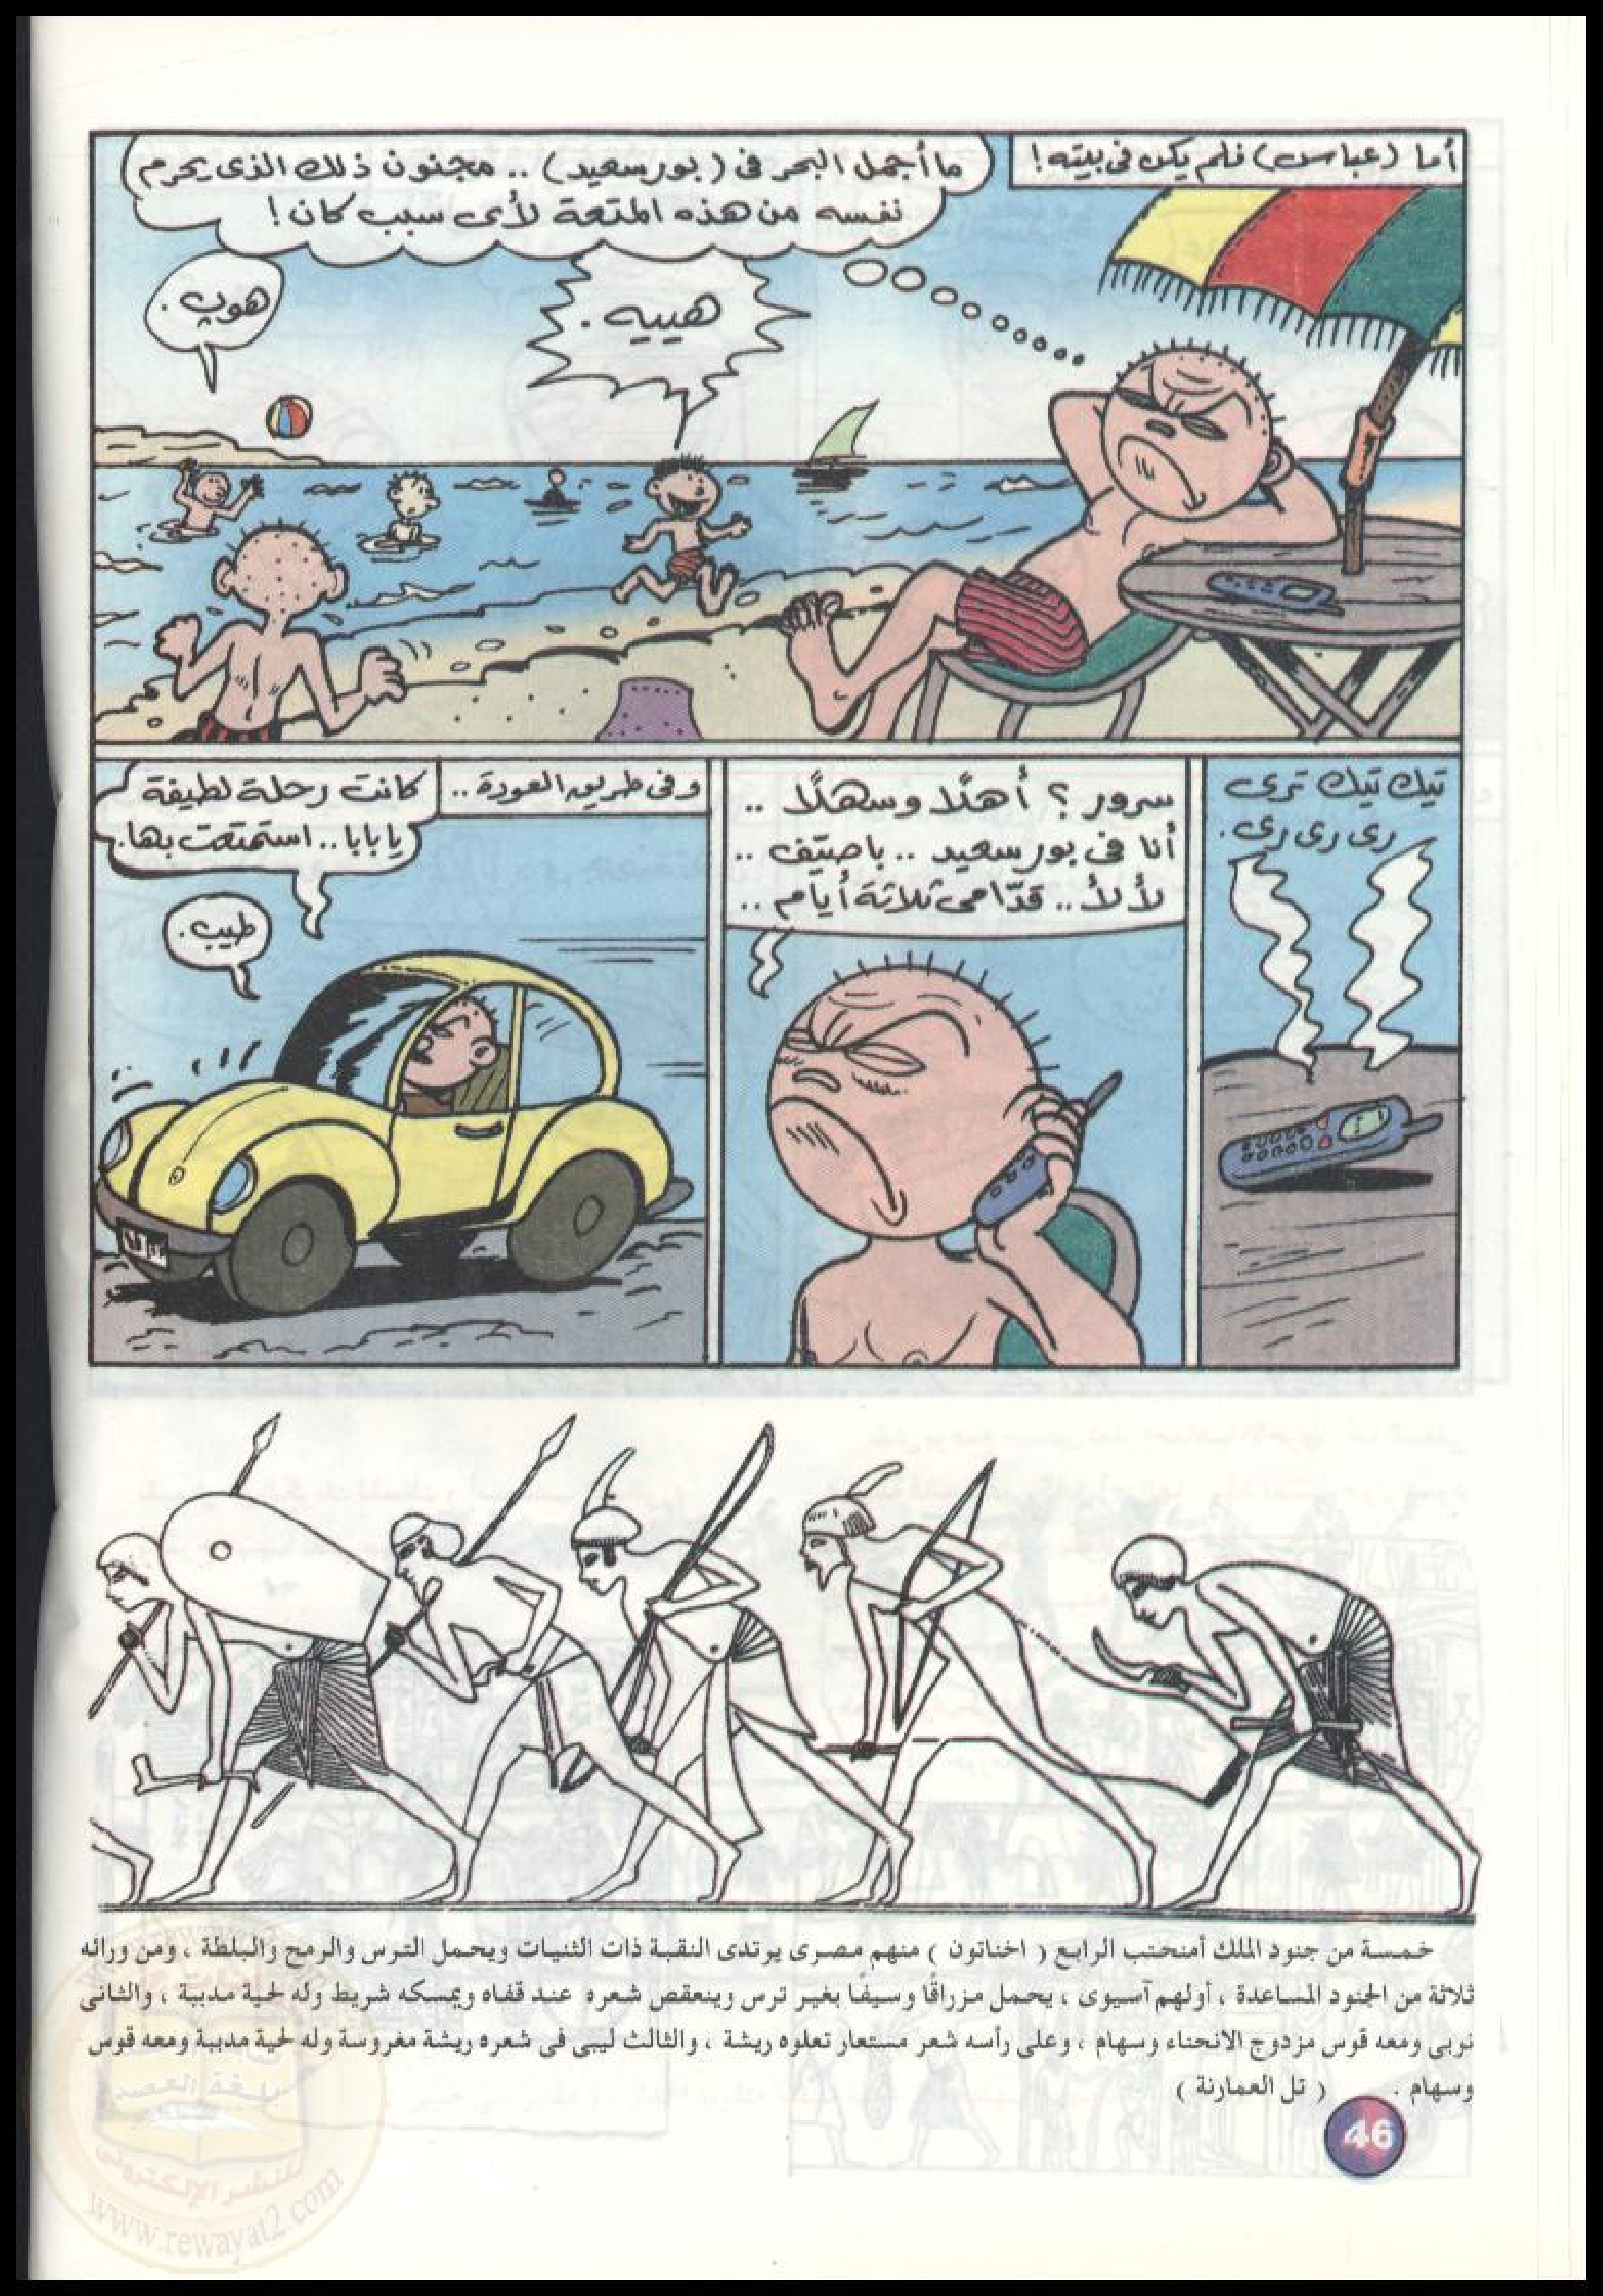 أما (عباس) فلم يكن فى بيته!
ما أجمل البحر فى (بورسعيد) .. مجنون ذلك الذى يحرم
نفسه من هذه المتعة لأى سبب كان!
هييه.
هوب.
تيك تيك ترى
رى رى رى.
سرور ؟ أهلًا وسهلًا ..
أنا فى بورسعيد .. باصيّف ..
لأ لأ.. قدّامى ثلاثة أيام ..
وفى طريق العودة ..
كانت رحلة لطيفة
يا بابا .. استمتعت بها.
طيب.
خمسة من جنود الملك أمنحتب الرابع ( اخناتون ) منهم مصرى يرتدى النقبة ذات الثنيات ويحمل الترس والرمح والبلطة ، ومن ورائه
ثلاثة من الجنود المساعدة ، أولهم آسيوى ، يحمل مزراقًا وسيفًا بغير ترس وينعقص شعره عند قفاه ويمسكه شريط وله لحية مدببة ، والثانى
نوبى ومعه قوس مزدوج الانحناء وسهام ، وعلى رأسه شعر مستعار تعلوه ريشة ، والثالث ليبى فى شعره ريشة مغروسة وله لحية مدببة ومعه قوس
وسهام . ( تل العمارنة )
46
www.rewayat2.com